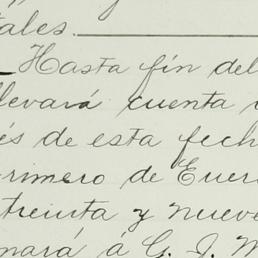 tales.
Hasta fin del
llevará cuenta
és de esta fech
primero de Ener
treinta y nueve
mará á G. J. M